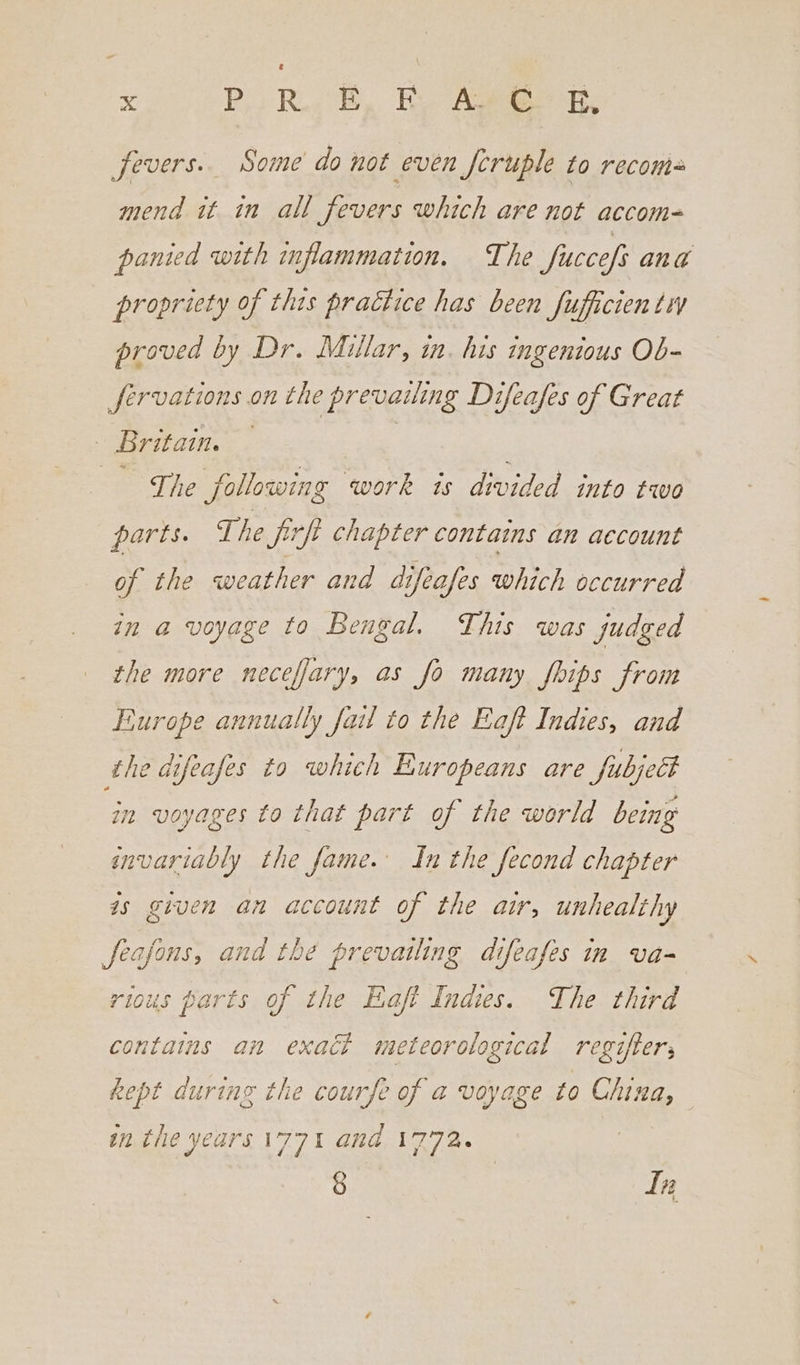 x P R E F A C E.
fevers. Some do not even ſcruple to recom-
mend it in all fevers which are not accom-
panied with inflammation. The ſucceſs and
propriety of this practice has been ſufficiently
proved by Dr. Millar, in his ingenious Ob-
ſervations on the prevailing Diſeaſes of Great
Britain.
The following work is divided into two
parts. The firſt chapter contains an account
of the weather and diſeaſes which occurred
in a voyage to Bengal. This was judged
the more neceſſary, as ſo many ſhips from
Europe annually ſail to the Eaſt Indies, and
the diſeaſes to which Europeans are ſubject
in voyages to that part of the world being
invariably the ſame. In the ſecond chapter
is given an account of the air, unhealthy
ſeaſons, and the prevailing diſeaſes in va-
rious parts of the Eaſt Indies. The third
contains an exact meteorological regiſter,
kept during the courſe of a voyage to China,
in the years 1771 and 1772.
8 In